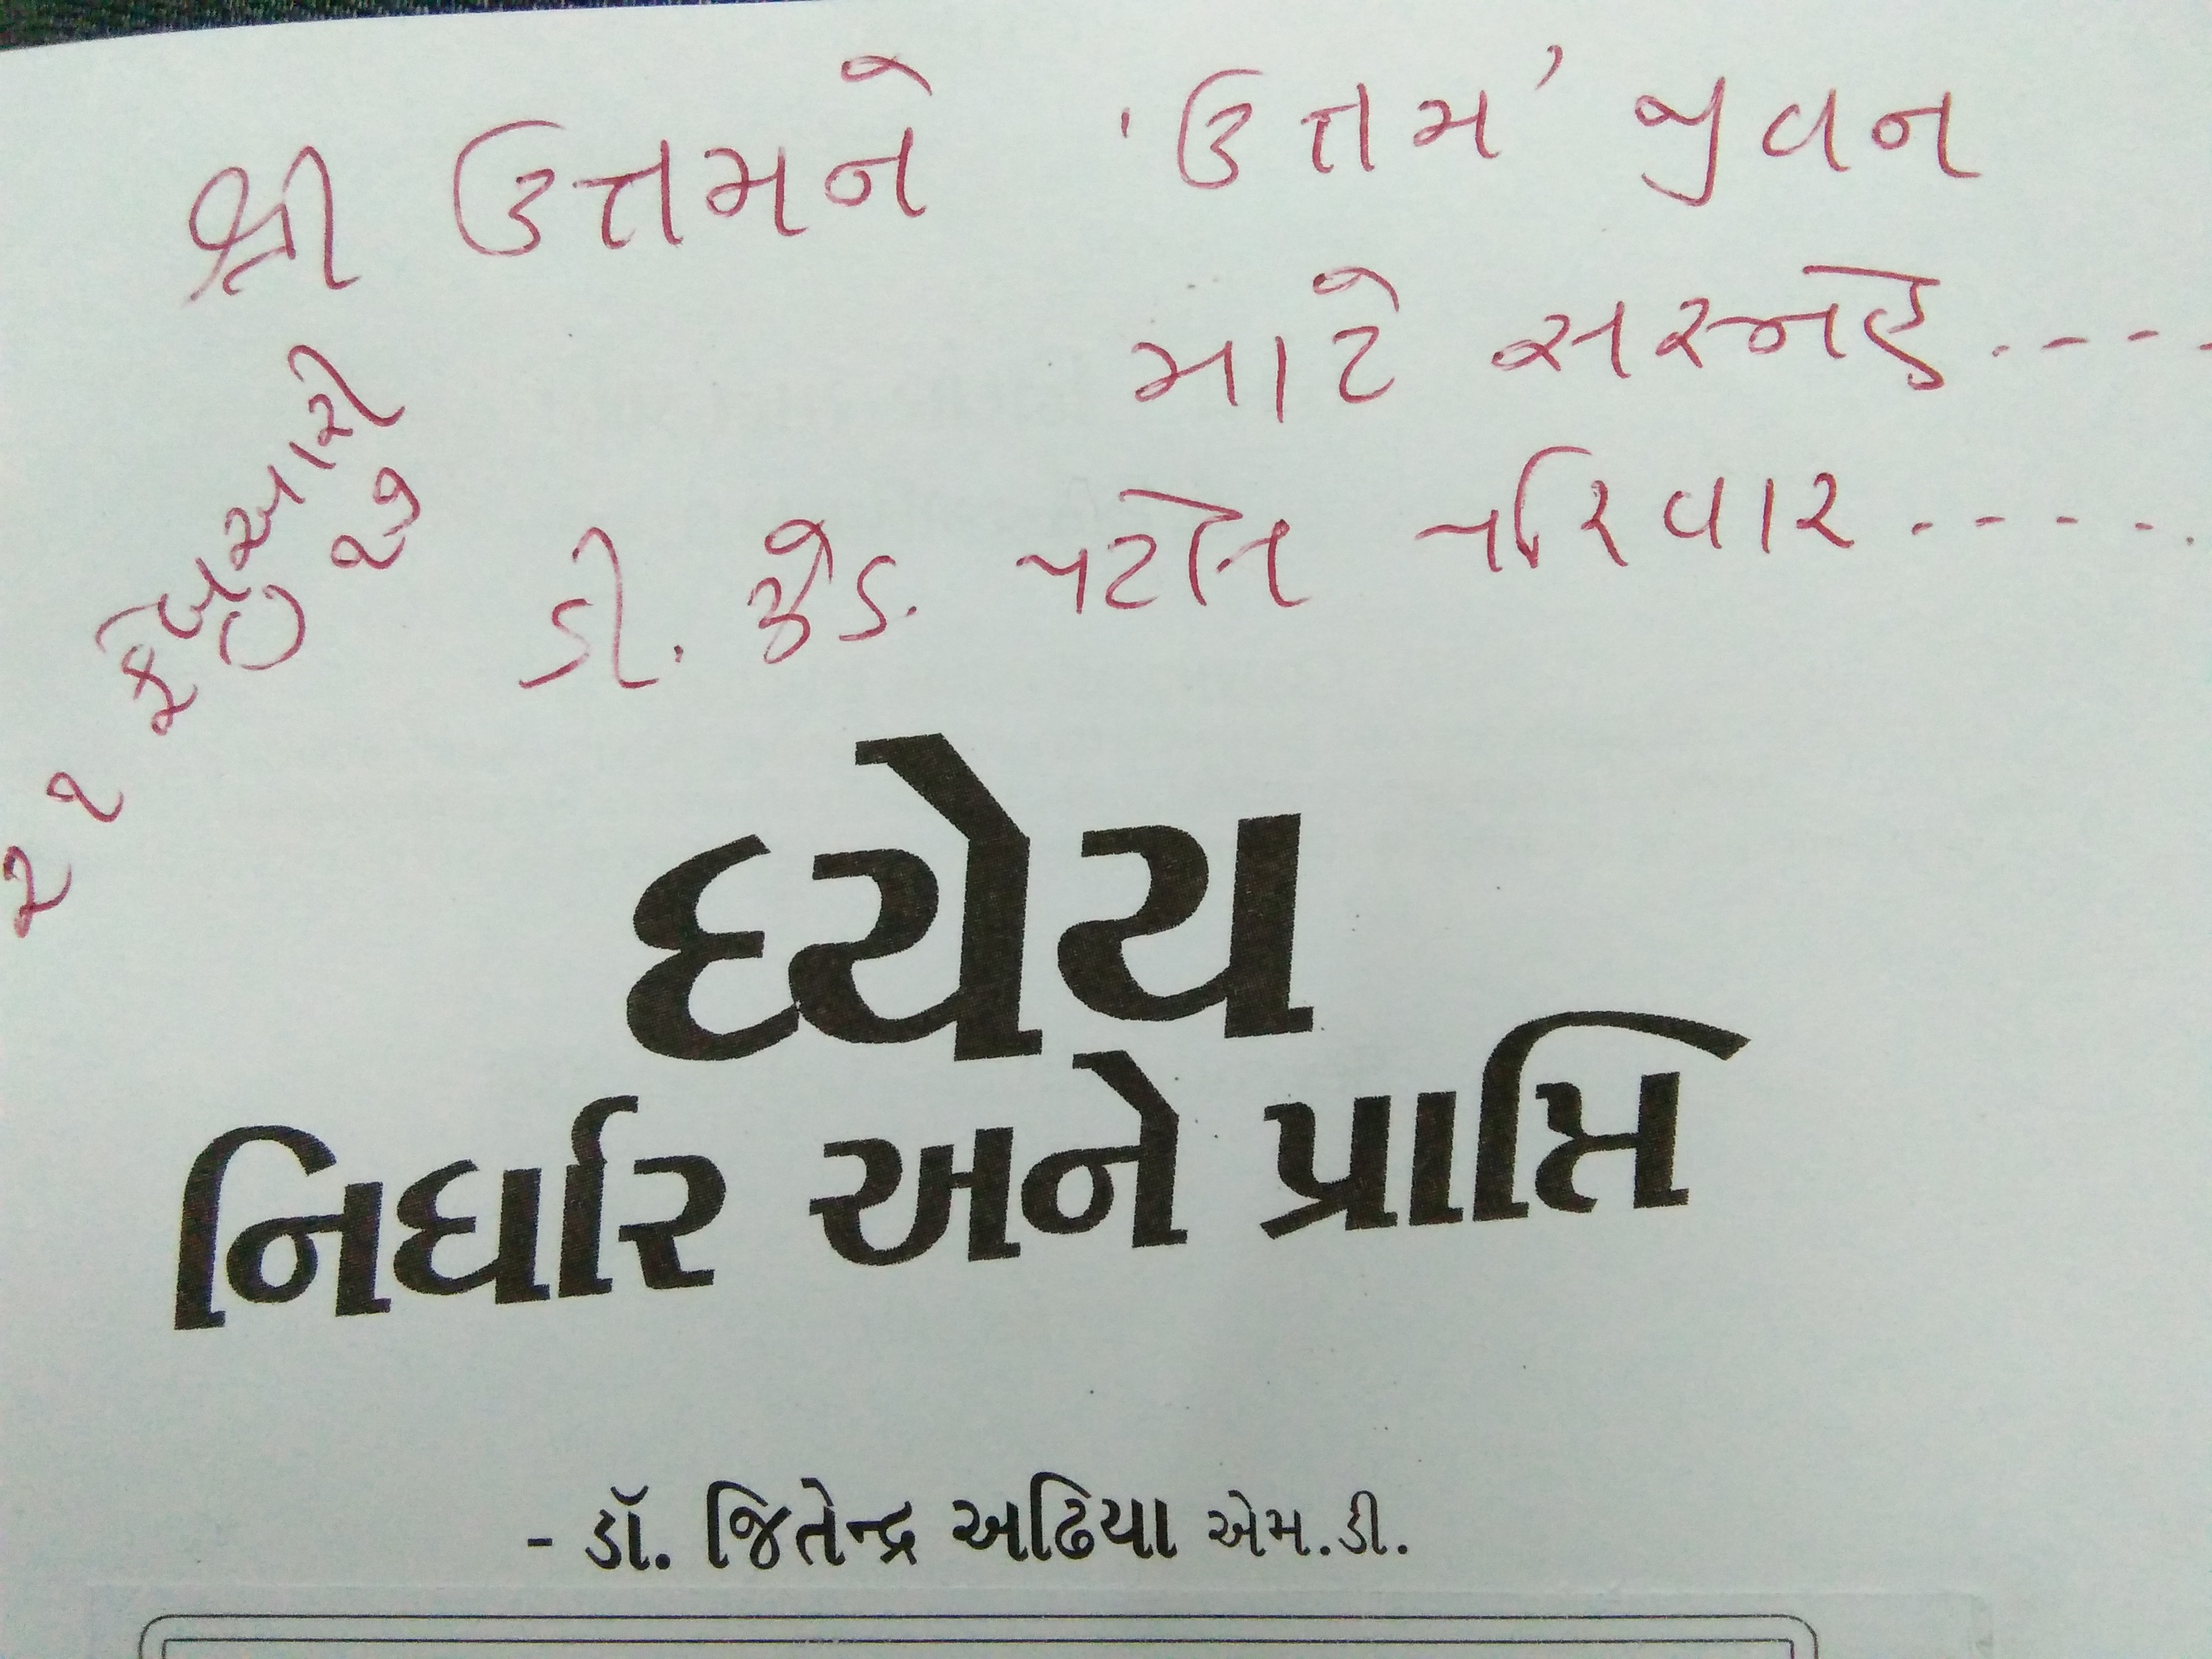 શ્રી ઉત્તમને 'ઉત્તમ' જીવન
માટે સસ્નેહ.----
ડી. ઝેડ. પટેલ પરિવાર.-----.
૨૨ ફેબ્રુઆરી
૨૭
ધ્યેય
નિર્ધાર અને પ્રાપ્તિ
- ડૉ. જિતેન્દ્ર અઢિયા એમ.ડી.